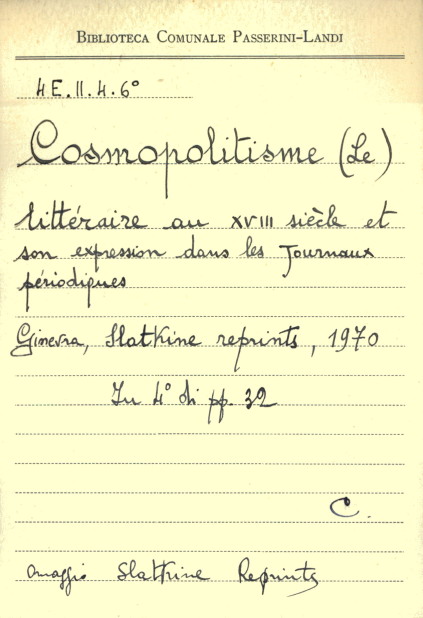 BIBLIOTECA COMUNALE PASSERINI-LANDI
4E.II.4.6°
Cosmopolitisme (Le)
littéraire au XVIII siècle et
son expression dans les Journaux
périodiques
Ginevra, Slatkine reprints, 1970
In 4° di pp. 32
C.
omaggio Slatkine Reprints